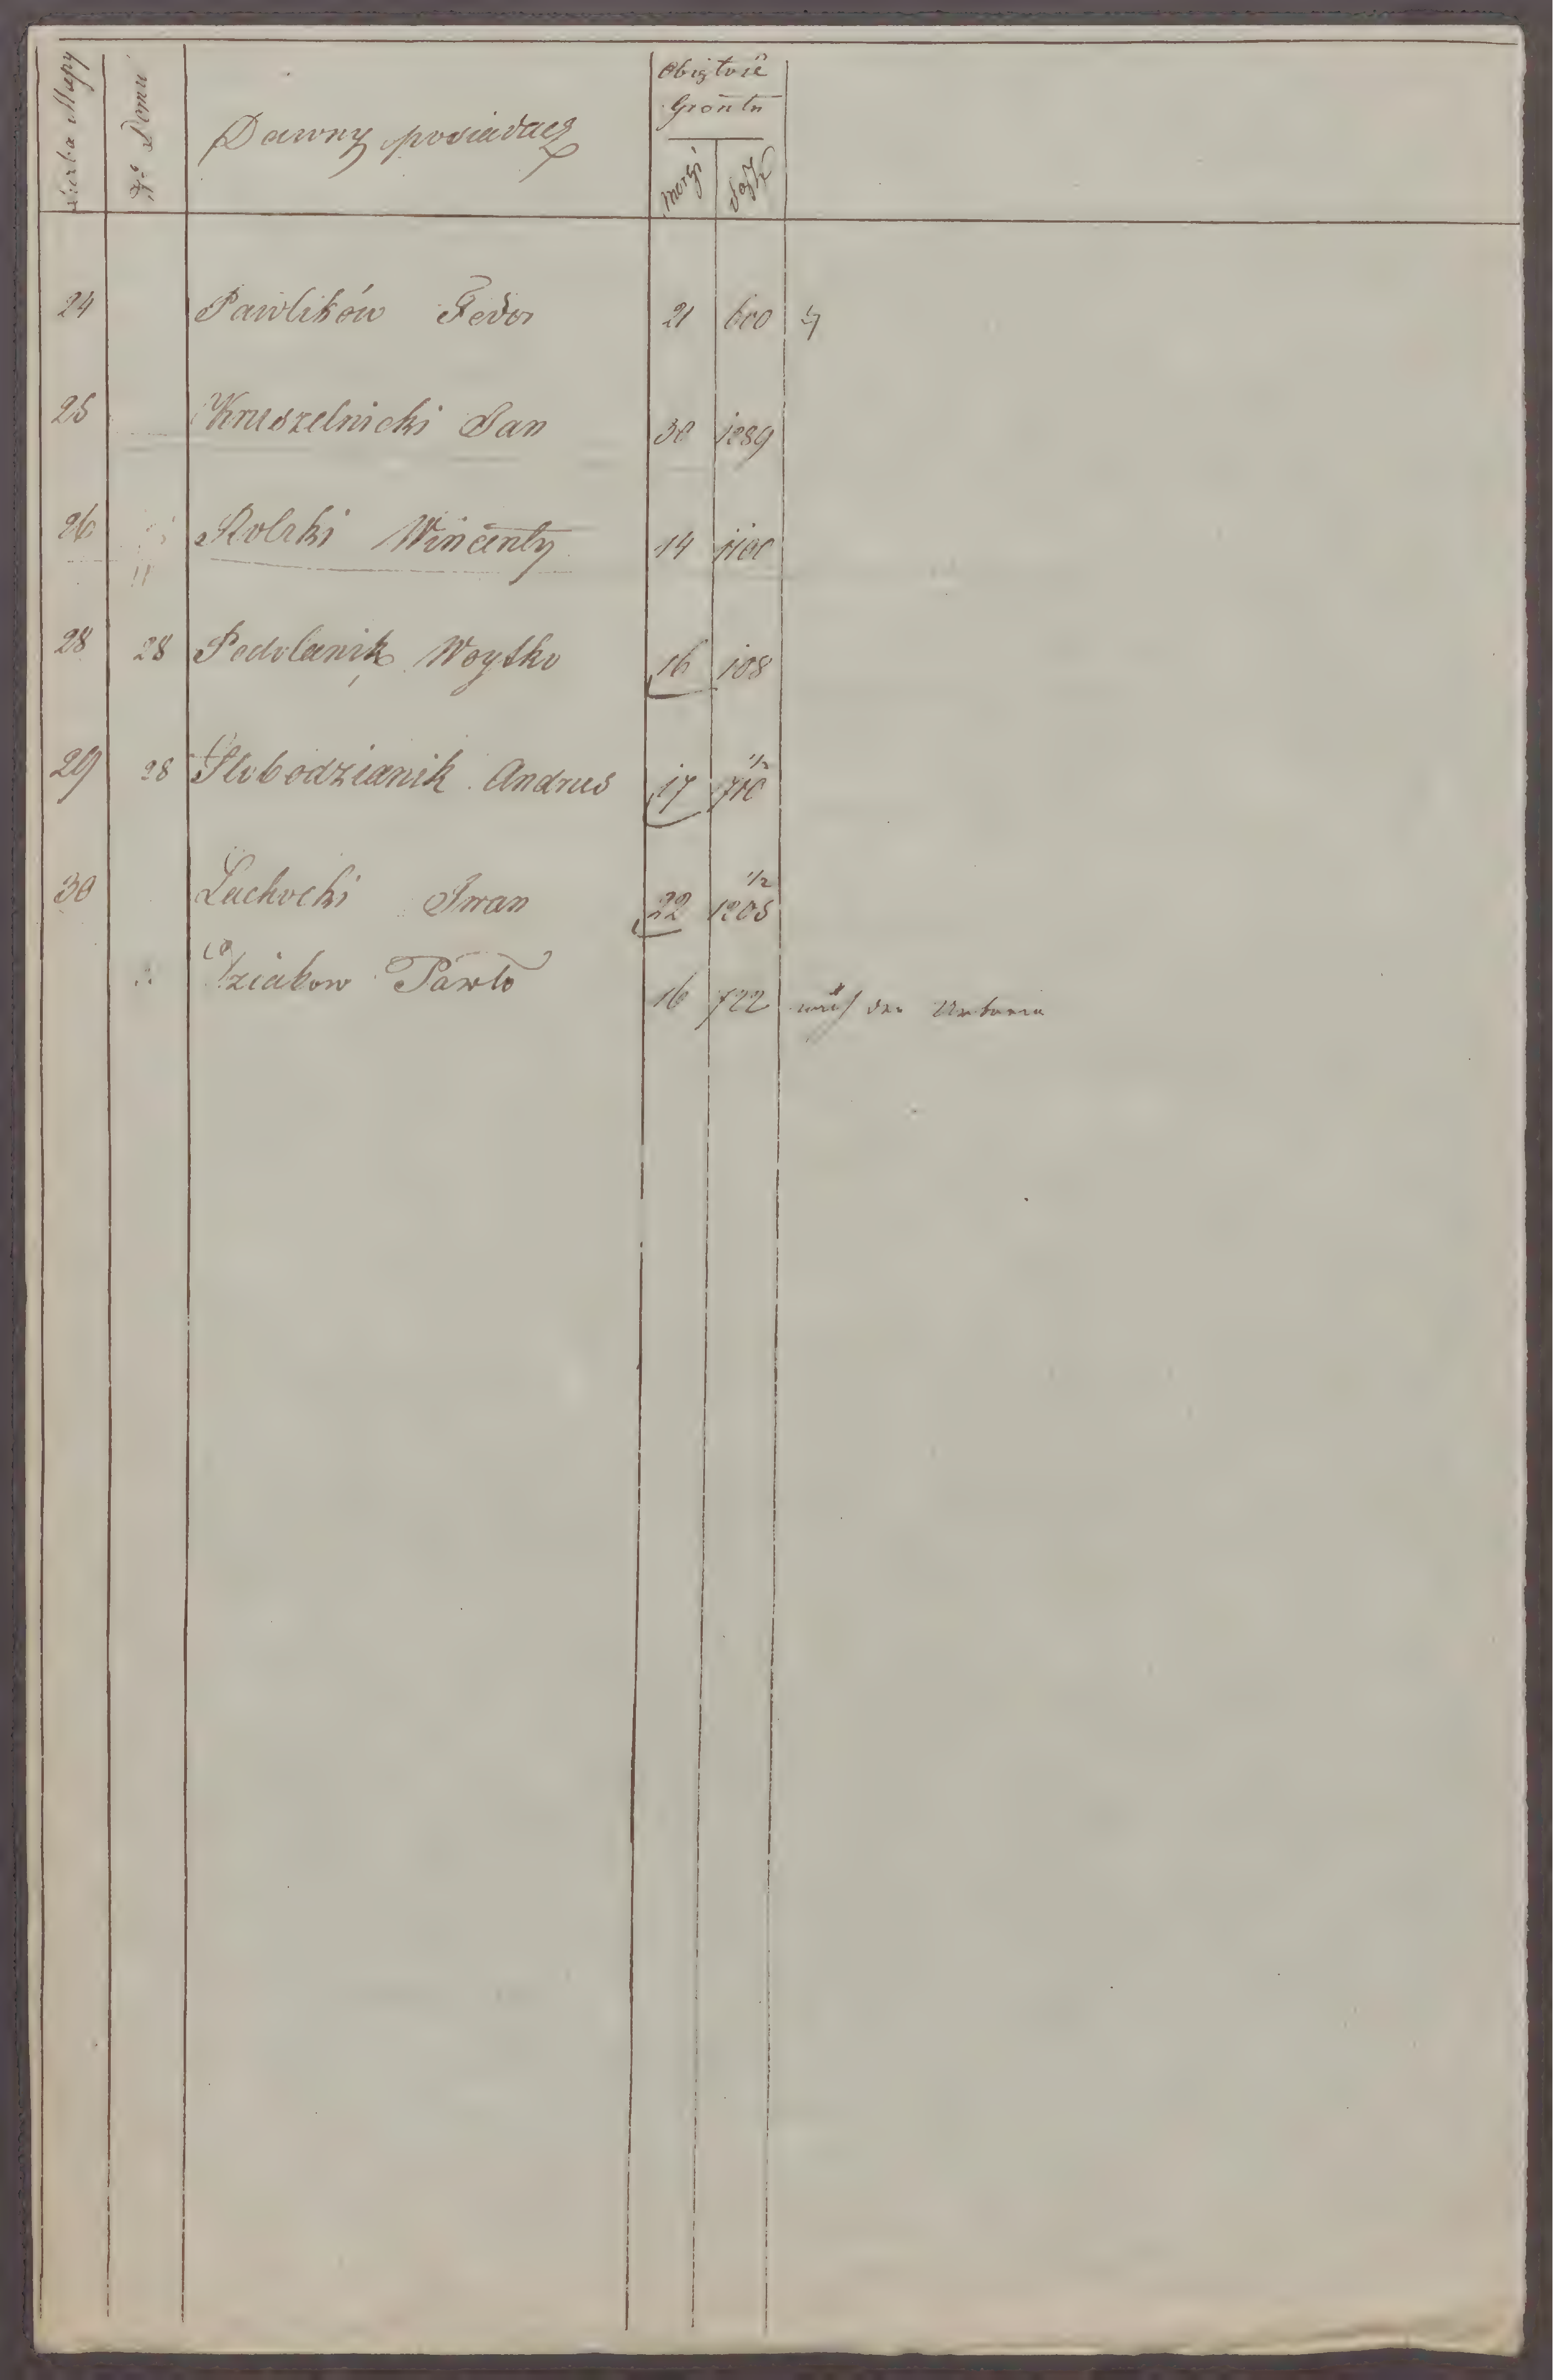 Liczba Mapy
No Domu
Dawny posiadacz
Obiętość
Grontu
morgi
Sąż
24 Pawlików Fedor 21 600
25 Kruszelnicki Jan 30 1289
26 Rolski Wincenty 14 1100
28 28 Podolanik Woytko 16 108
29 28 Słobodzianik Andrus 17 710 1/2
30 Lachocki Iwan 22 1205 1/2
Dziakow Pawło 16 722 nach der